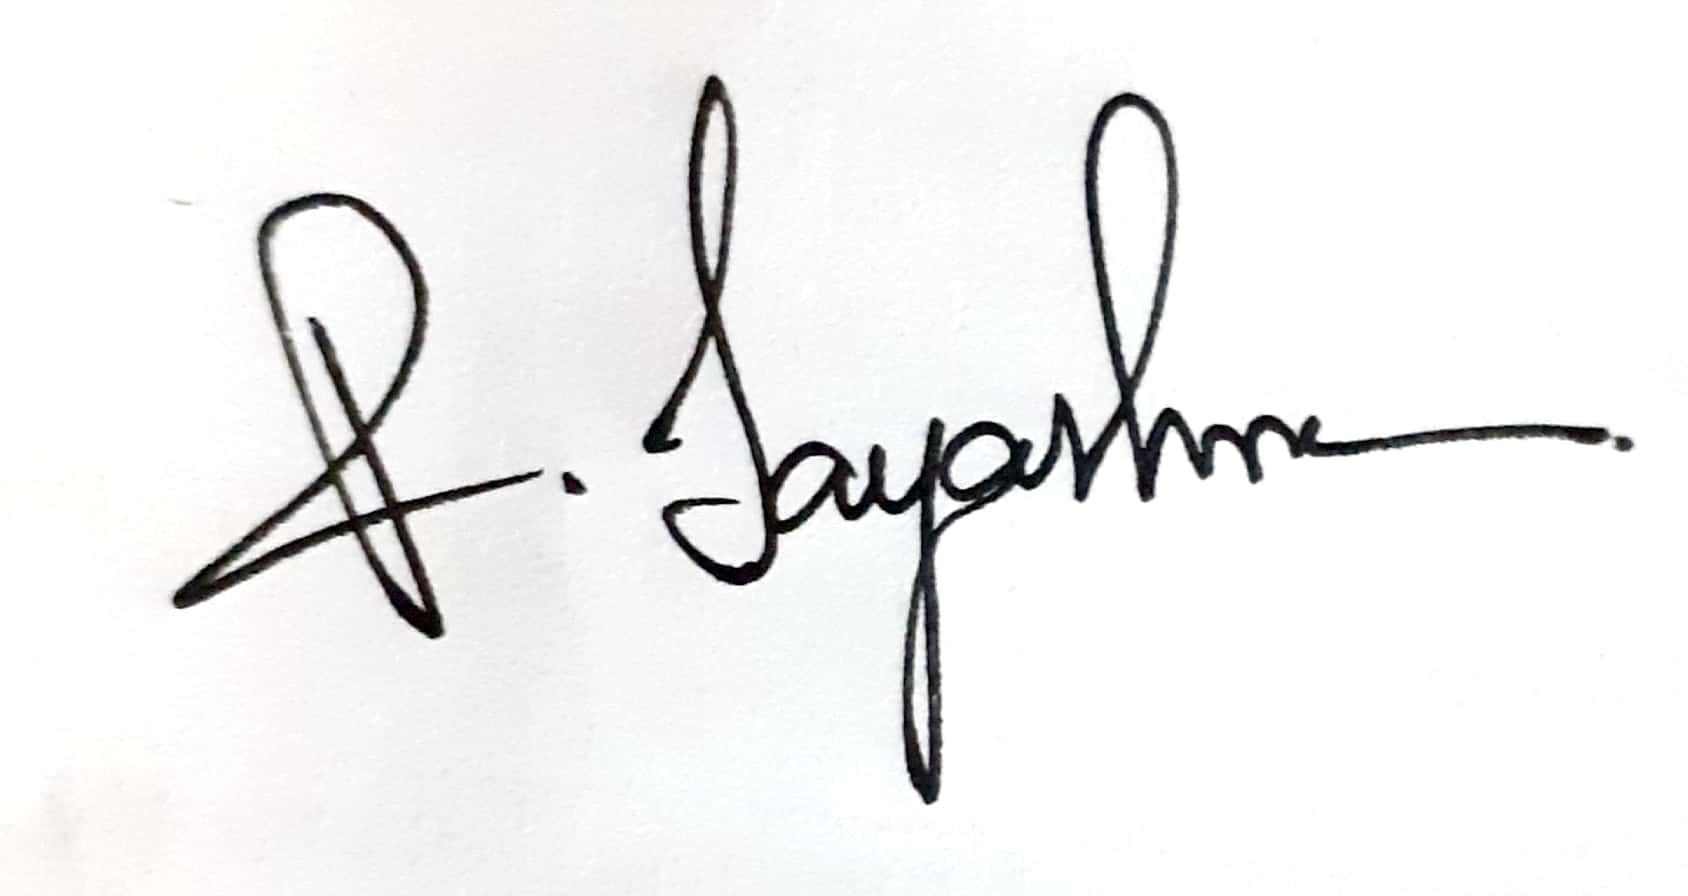 R. Jayashree